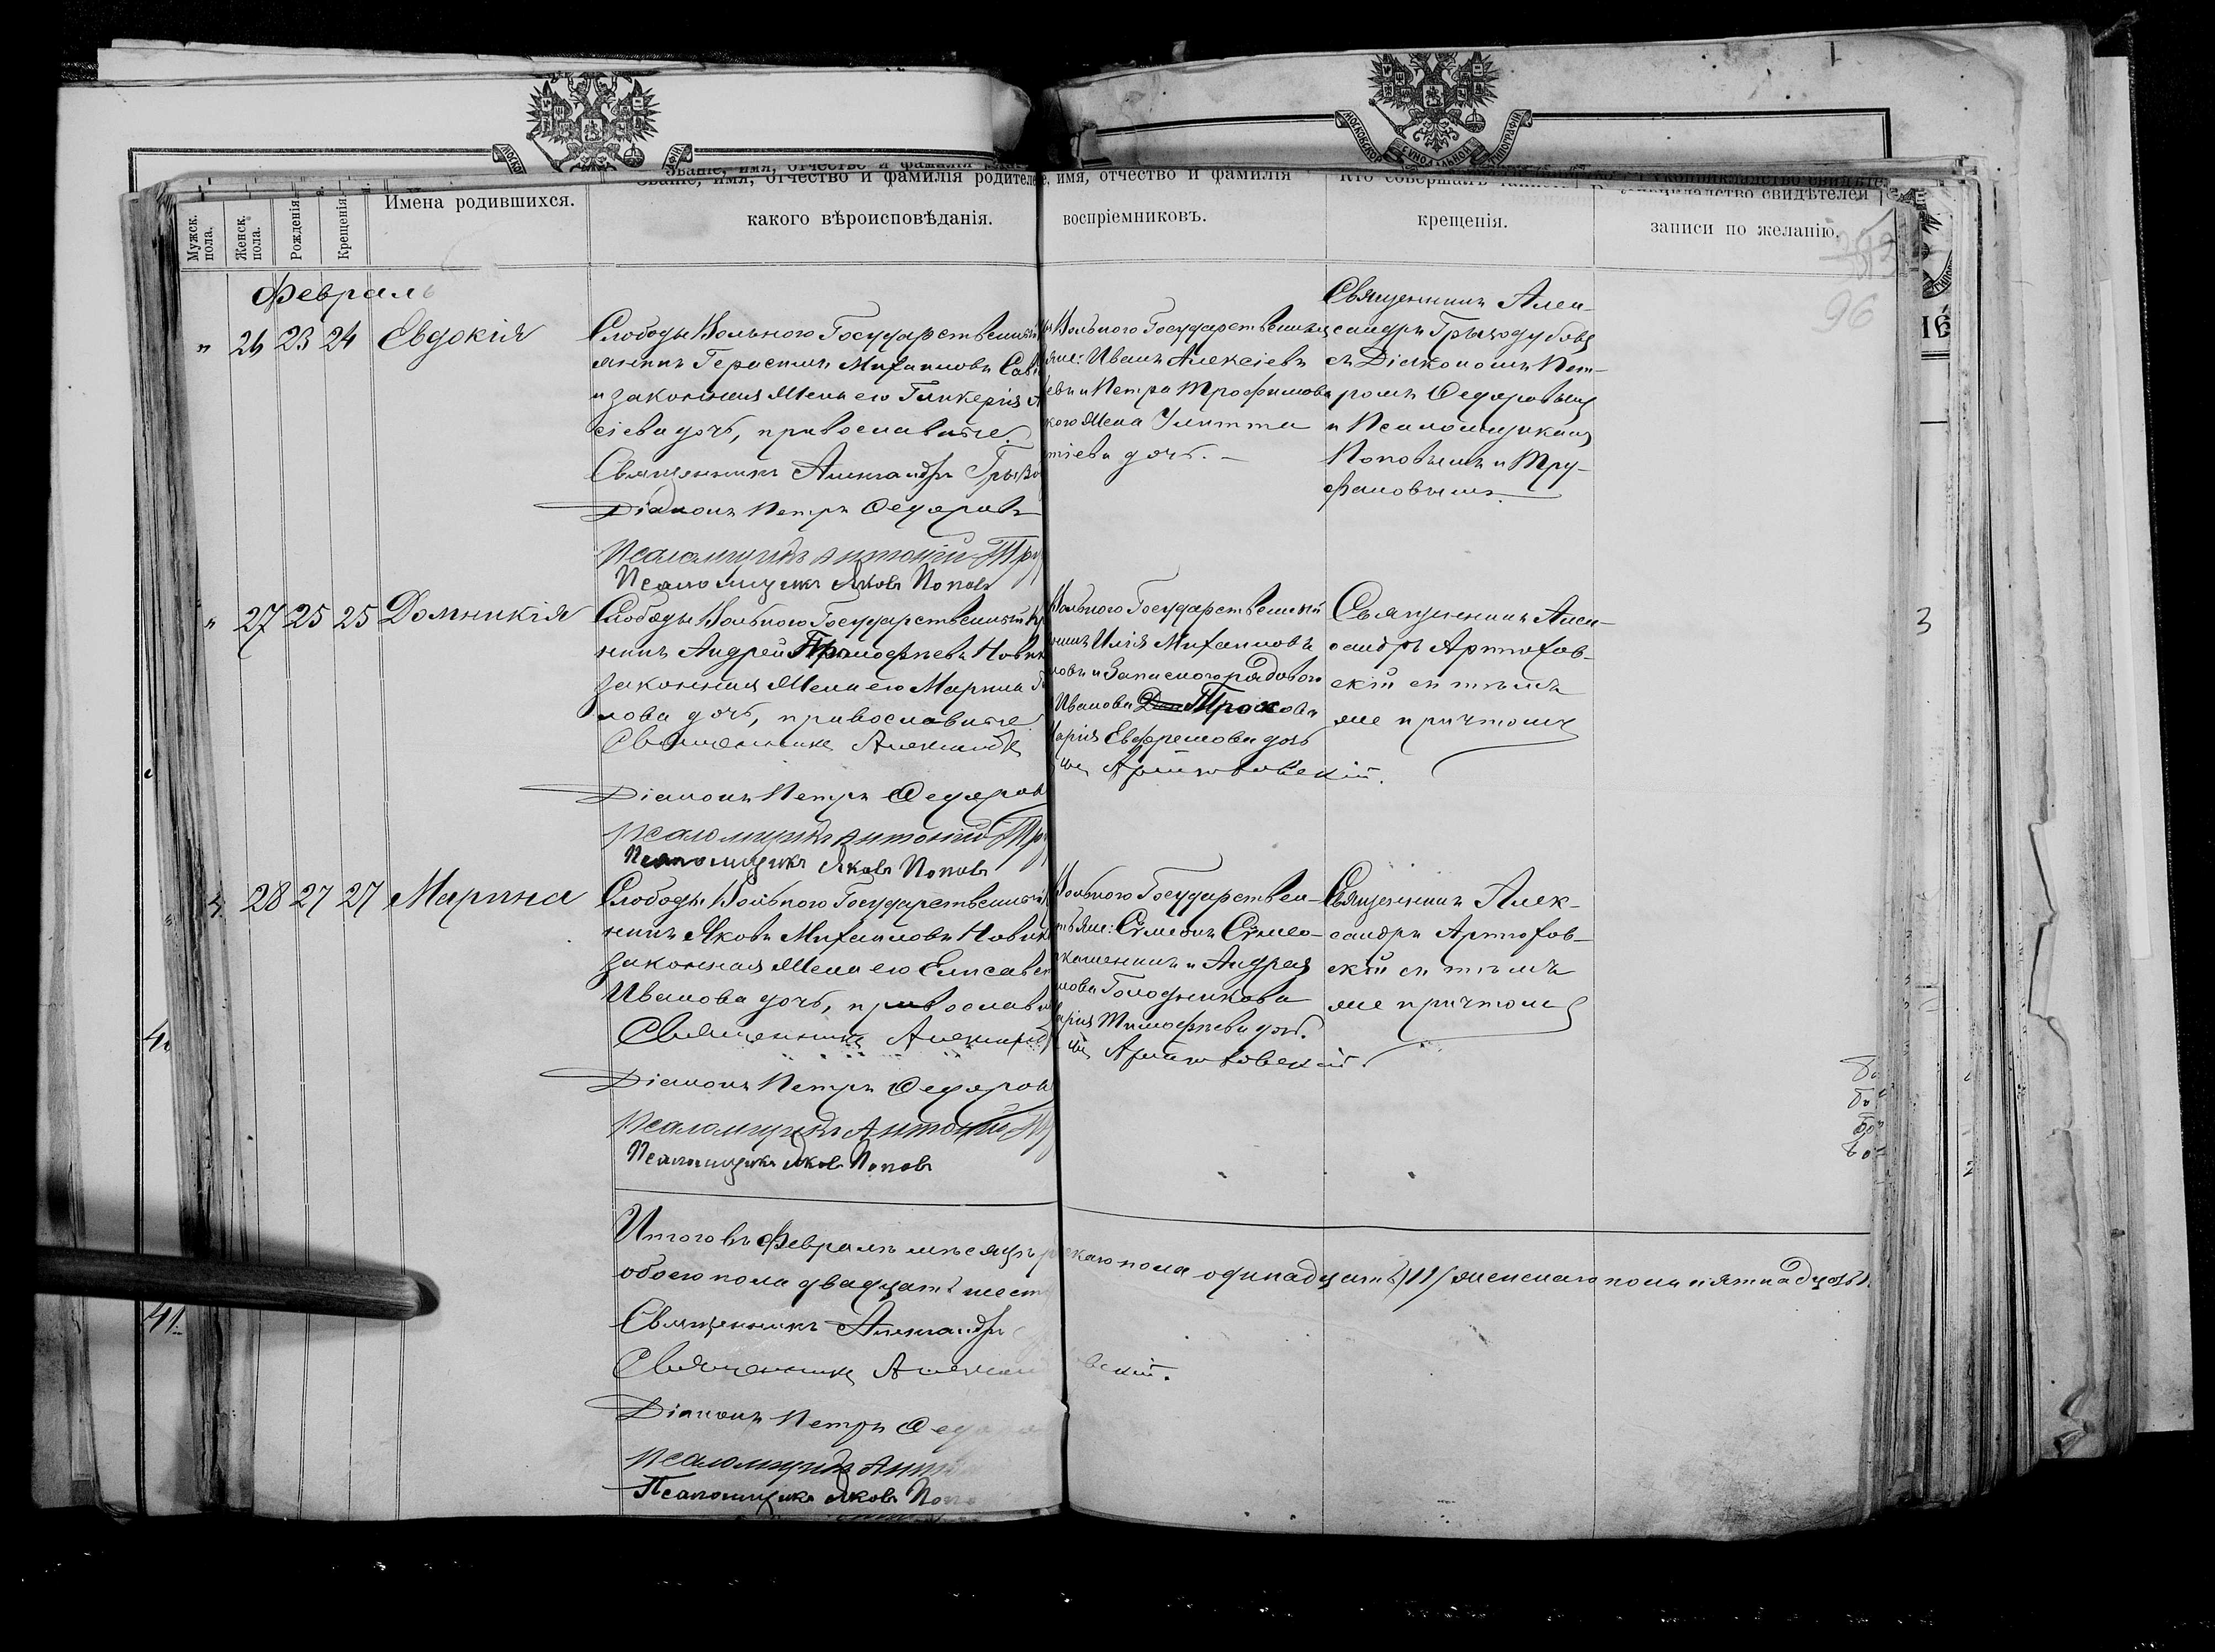 МОСКОВСКОЙ СѴНОДАЛЬНОЙ ТИПОГРАФІИ
Званіе, имя, отчество и фамилія
Мужск. пола.
Женск. пола.
Рожденія
Крещенія
Имена родившихся.
какого вѣроисповѣданія.
имя, отчество и фамилія
воспріемниковъ.
крещенія.
записи по желанію.
96
Февраль
" 26 23 24 Евдокія
Слободы Вольного Государственный
янинъ Герасимъ Михаиловъ Сав
и законная Жена его Гликерія А
сіева дочь, православные.
Священникъ Александръ Грызо
Діаконъ Петръ Федоровъ
Псаломщикъ Антоній Тру
Псаломщикъ Яковъ Поповъ
Вольного Государственные
яне: Иванъ Алексіевъ
евъ и Петра Трофимова
кого Жена Улитта
тіева дочь. —
Священникъ Алек-
сандръ Грызодубовъ
съ Діакономъ Пет-
ромъ Федоровымъ
и Псаломщиками
Поповымъ и Тру-
фановымъ.
" 27 25 25 Домникія
Слободы Вольного Государственный Кр
нинъ Андрей Тимофѣевъ Новик
законная Жена его Марина
лова дочь, православные
Священникъ Александръ
Діаконъ Петръ Федоровъ
Псаломщикъ Антоній Тру
Псаломщикъ Яковъ Поповъ
Вольного Государственный
нинъ Илія Михаиловъ
ковъ и Запасного рядового
Иванова Трокова
Марія Евфремова дочь
Артюховскій.
Священникъ Алек-
сандръ Артюхов-
скій съ тѣмъ
же причтомъ
28 27 27 Марина
Слободы Вольного Государственный
нинъ Яковъ Михаиловъ Новик
законная Жена его Елисавет
Иванова дочь, православн
Священникъ Александ
Діаконъ Петръ Федоров
Псаломщикъ Антоній Тр
Псаломщикъ Яковъ Поповъ
Вольного Государствен-
яне: Сѵмеонъ Сѵмео-
и Андрея
нова Голодникова
арія Тимофѣева дочь.
Артюховскій.
Священникъ Алек-
сандръ Артюхов-
скій съ тѣмъ
же причтомъ
Итого въ Февралѣ мѣсяцѣ р скаго пола одинадцать /11/ женскаго пола пятнадцать
обоего пола двадцать шест
Священникъ Александръ
Священникъ Алексан вскій.
Діаконъ Петръ Федо
Псаломщикъ Анто
Псаломщикъ Яковъ Попо
41
3